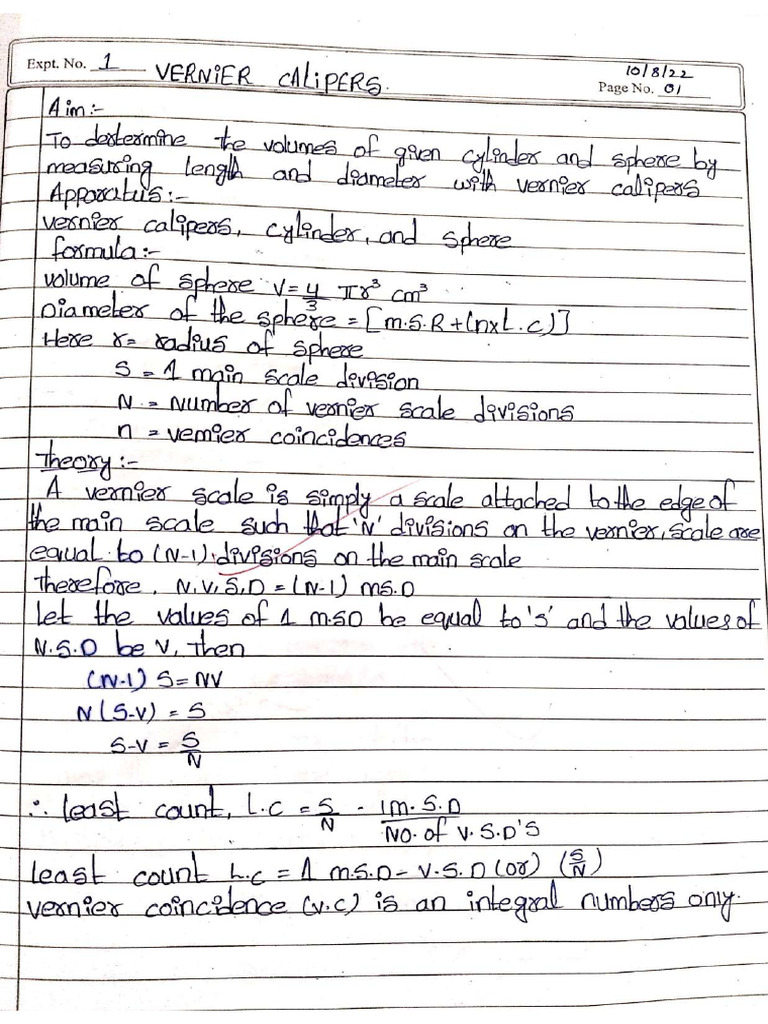 Expt. No. 1
VERNIER CALIPERS.
10/8/22
Page No. 01
Aim:-
To destermine the volumes of given cylinder and sphere by
measuring length and diameter with vernier calipers
Apparatus:-
vernier calipers, cylinder, and sphere
formula:-
volume of sphere V = 4/3 πr³ cm³
Diameter of the sphere = [m.S.R + (n×L.C)]
Here r = radius of sphere
S = 1 main scale division
N = Number of vernier scale divisions
n = vernier coincidences
Theory:-
A vernier scale is simply a scale attached to the edge of
the main scale such that 'N' divisions on the vernier, scale are
equal to (N-1) divisions on the main scale
Therefore, N.V.S.D = (N-1) mS.D
Let the values of 1 m.SD be equal to 's' and the values of
V.S.D be V, then
(N-1) S = NV
N(S-V) = S
S-V = S/N
∴ least count, L.C = S/N - 1M.S.D/NO. of V.S.D'S
least count L.C = 1 m.S.D - V.S.D (or) (S/N)
vernier coincidence (v.c) is an integral numbers only.